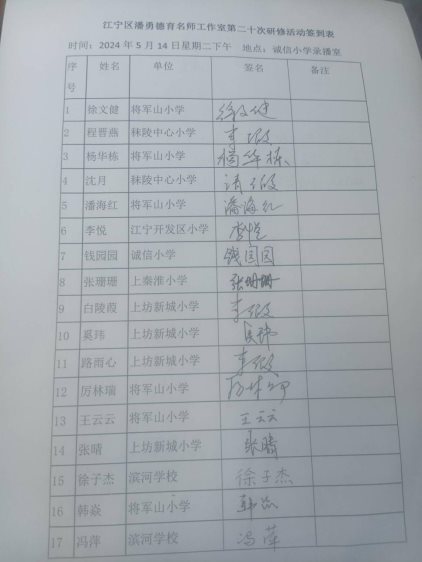 江宁区潘勇德育名师工作室第二十次研修活动签到表
时间：2024 年 5 月 14 日星期二下午 地点：诚信小学录播室
序号 姓名 单位 签名 备注
1 徐文健 将军山小学 徐文健
2 程晋燕 秣陵中心小学 事假
3 杨华栋 将军山小学 杨华栋
4 沈月 秣陵中心小学 请假
5 潘海红 将军山小学 潘海红
6 李悦 江宁开发区小学 李悦
7 钱园园 诚信小学 钱园园
8 张珊珊 上秦淮小学 张珊珊
9 白陵葭 上坊新城小学 事假
10 奚玮 上坊新城小学 奚玮
11 路雨心 上坊新城小学 事假
12 厉林瑞 将军山小学 厉林瑞
13 王云云 将军山小学 王云云
14 张晴 上坊新城小学 张晴
15 徐子杰 滨河学校 徐子杰
16 韩焱 将军山小学 韩焱
17 冯萍 滨河学校 冯萍